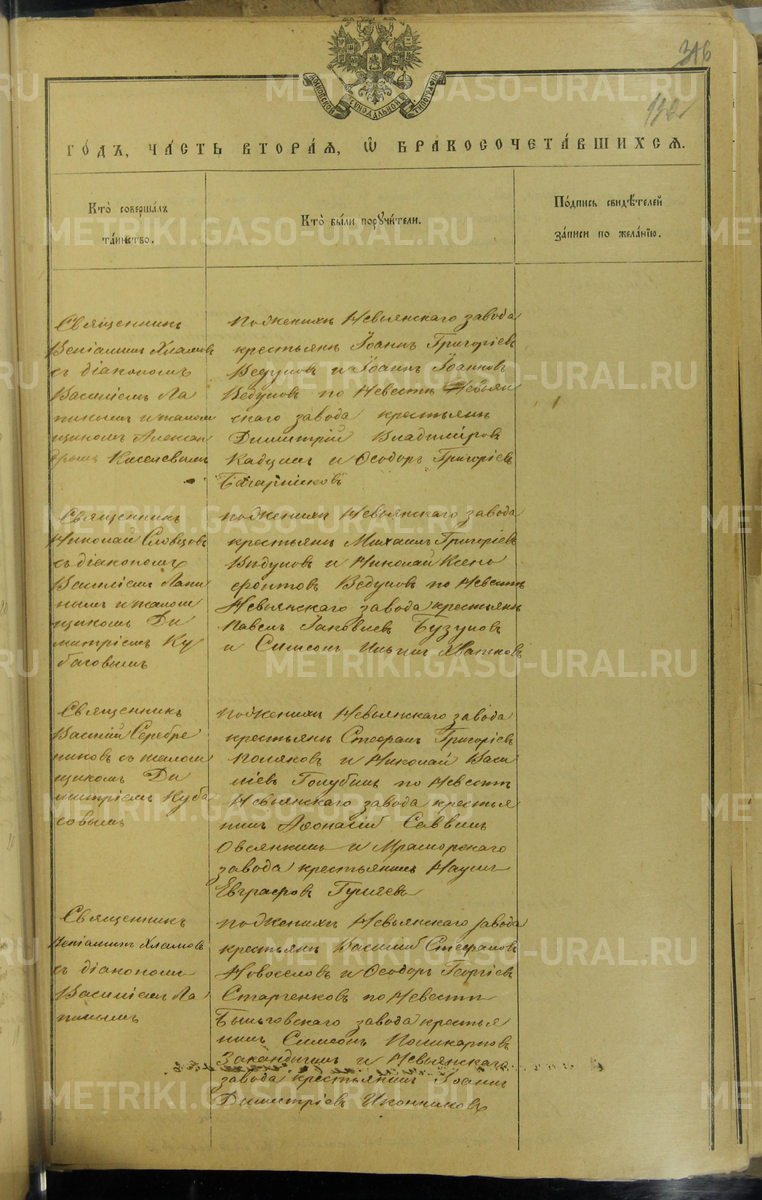 316
192
ГОДЪ, ЧАСТЬ ВТОРАЯ, Ѡ БРАКОСОЧЕТАВШИХСЯ.
Кто совершалъ
таинство.
Кто были поручители.
Подпись свидѣтелей
записи по желанію.
Священникъ
Веніаминъ Хламовъ
съ діакономъ
Василіемъ Ла
пинымъ и псалом
щикомъ Алексан
дромъ Киселевымъ
по женихѣ Невьянскаго завода
крестьяне Іоаннъ Григоріевъ
Ведуновъ и Іоаннъ Іоанновъ
Ведуновъ по невестѣ Невьян
скаго завода крестьяне
Димитрій Владиміровъ
и Ѳеодоръ Григоріевъ
Священникъ
Николай Словцовъ
съ діакономъ
Василіемъ Лапи
нымъ и псалом
щикомъ Ди
митріемъ Ку
басовымъ
по женихѣ Невьянскаго завода
крестьяне Михаилъ Григоріевъ
Ведуновъ и Николай Ксено
фонтовъ Ведуновъ по невестѣ
Невьянскаго завода крестьяне
Павелъ Іаковлевъ Бузуновъ
и Симеонъ Ильинъ
Священникъ
Василій Серебре
никовъ съ псалом
щикомъ Ди
митріемъ Куба
совымъ
по женихѣ Невьянскаго завода
крестьяне Стефанъ Григоріевъ
Поляковъ и Николай Васи
ліевъ Голубинъ по невестѣ
Невьянскаго завода крестья
нинъ Аѳонасій Саввинъ
Овсянкинъ и Мраморскаго
завода крестьянинъ Наумъ
Евграфовъ Гуляевъ
Священникъ
Веніаминъ Хламовъ
съ діакономъ
Василіемъ Ла
пинымъ
по женихѣ Невьянскаго завода
крестьяне Василій Стефановъ
Новоселовъ и Ѳеодоръ Георгіевъ
Старченковъ по невестѣ
Быньговскаго завода крестья
нинъ Симеонъ Поликарповъ
и Невьянскаго
завода крестьянинъ Іоаннъ
Димитріевъ Иконниковъ
METRIKI.GASO-URAL.RU